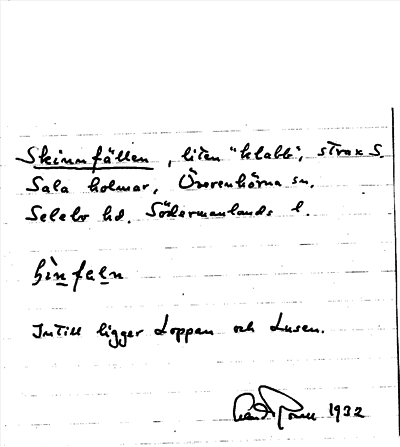 Skinnfällen, liten "klabb", strax S.
Sala holmar, Överenhörna sn.
Selebo hd. Södermanlands l.
hìnfaln
Intill ligger Loppan och Lusen.
1932